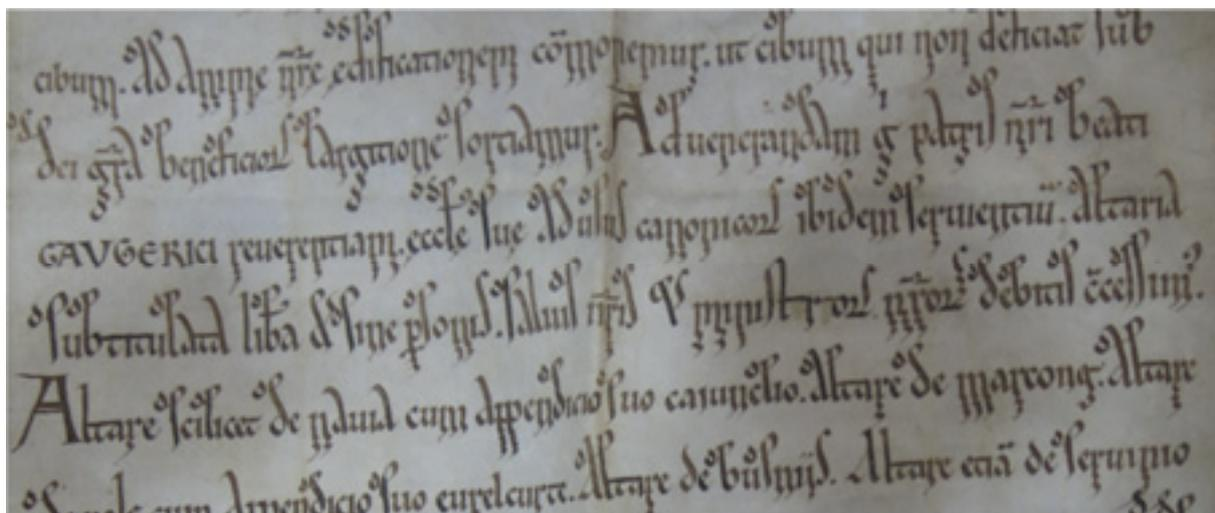 cibum. Ad anime nr̄e edificationem cōmonemur. ut cibum qui non deficiat sub
dei gr̄a beneficior largitionē sortiamur. Ad uenerandam g patris nr̄i beati
GAVGERICI reuerentiam. eccłe sue. Ad usus canonicor ibidem seruientiū. Altaria
subtitulata lib̄a & sine p̱sonis. saluis nr̄is ministror nr̄or debitis c̄cessim.
Altare scilicet de nauia cum appendicio suo caiunelio. Altare de marconę. Altare
cum appendicio suo eurelcurt. Altare de busniis. Altare etiā de seruino